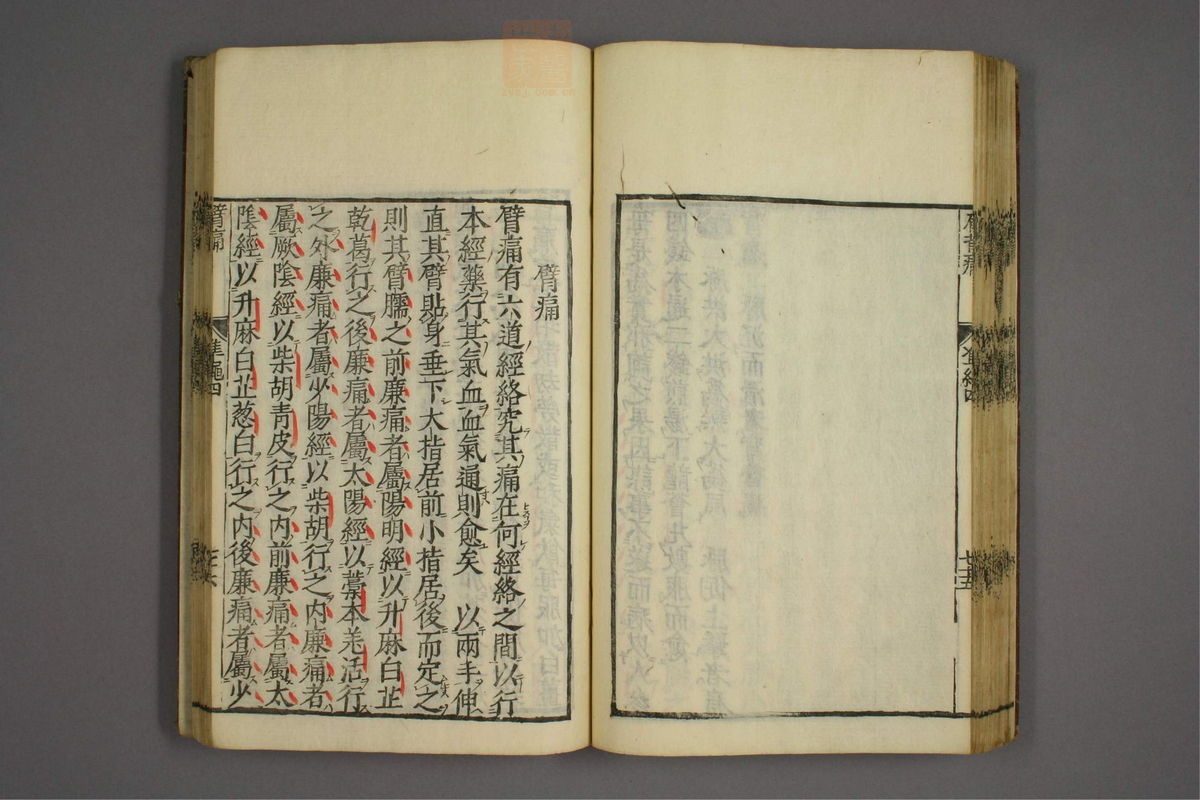 肩背痛
準繩四
廿五
臂痛
臂痛有六道經絡究其痛在何經絡之間以行
本經藥行其氣血血氣通則愈矣 以兩手伸
直其臂貼身垂下大指居前小指居後而定之
則其臂臑之前廉痛者屬陽明經以升麻白芷
乾葛行之後廉痛者屬太陽經以藁本羌活行
之外廉痛者屬少陽經以柴胡行之内廉痛者
屬厥陰經以柴胡青皮行之内前廉痛者屬太
陰經以升麻白芷葱白行之内後廉痛者屬少
臂痛
準繩四
zysj.com.cn